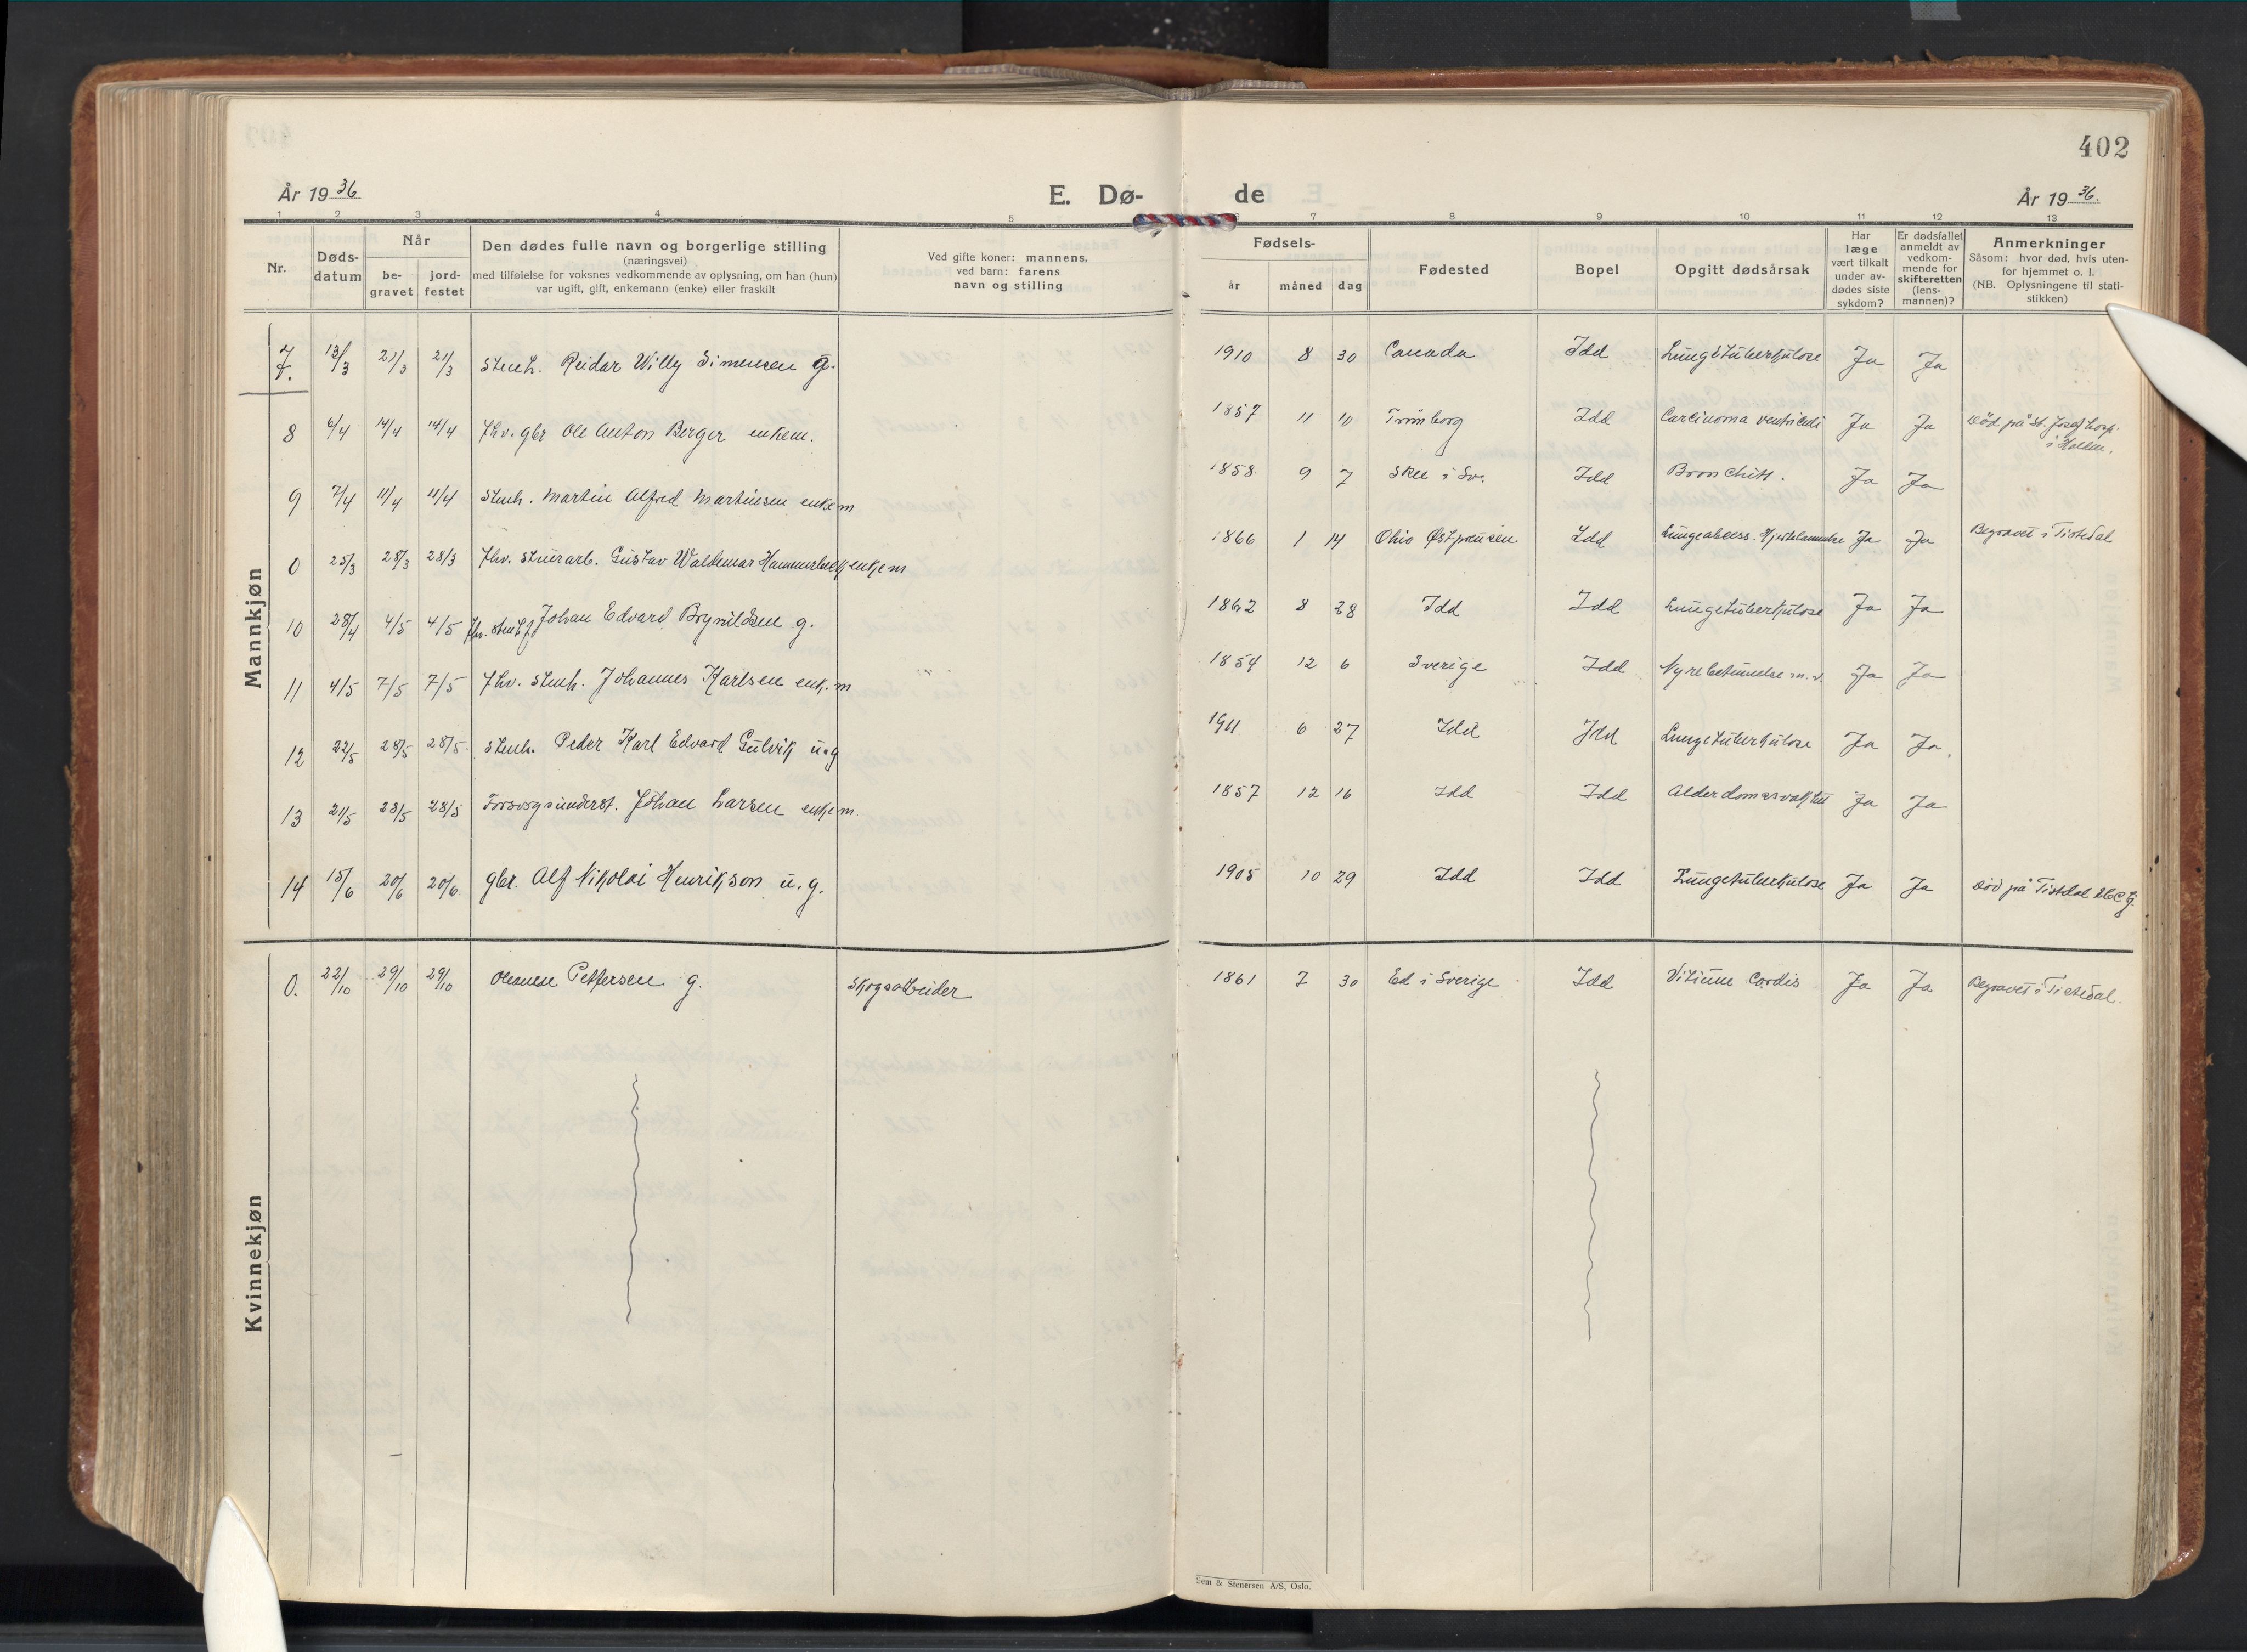 402
År 1936
E. Dø-
de
År 1936.
1 2 3 4 5 6 7 8 9 10 11 12 13
Nr.
Døds-
datum
Når
be-
gravet
jord-
festet
Den dødes fulle navn og borgerlige stilling
(næringsvei)
med tilføielse for voksnes vedkommende av oplysning, om han (hun)
var ugift, gift, enkemann (enke) eller fraskilt
Ved gifte koner: mannens,
ved barn: farens
navn og stilling
Fødsels-
år måned dag
Fødested
Bopel
Opgitt dødsårsak
Har
læge
vært tilkalt
under av-
dødes siste
sykdom?
Er dødsfallet
anmeldt av
vedkom-
mende for
skifteretten
(lens-
mannen)?
Anmerkninger
Såsom: hvor død, hvis uten-
for hjemmet o. l.
(NB. Oplysningene til stati-
stikken)
Mannkjøn
7. 13/3 21/3 21/3 Stenh. Reidar Willy Simensen g. 1910 8 30 Canada Idd Lungetuberkulose Ja Ja
8 6/4 14/4 14/4 Fhv. gbr Ole Anton Berger enkem. 1857 11 10 Idd Carcinoma ventriculi Ja Ja Död på St. Josef hosp.
i Halden.
9 7/4 11/4 11/4 Stenh. Martin Alfred Martinsen enkem 1858 9 7 Skee i Sv. Idd Bronchitt. Ja Ja
0 25/3 28/3 28/3 Fhv. Gustav Waldemar enkem 1866 1 14 Ohio Østpreusen Idd Lungeabcess. Hjertelammelse Ja Ja Begravet i Tistedal
10 28/4 4/5 4/5 Fhv. stenh. Johan Edvard Brynildsen g. 1862 8 28 Idd Idd Lungetuberkulose Ja Ja
11 4/5 7/5 7/5 Fhv. stenh. Johannes Karlsen enk.m 1854 12 6 Sverige Idd Nyrebetennelse m.v. Ja Ja
12 22/5 28/5 28/5 Stenh. Peder Karl Edvard Gulvik u.g 1911 6 27 Idd Idd Lungetuberkulose Ja Ja.
13 21/5 23/5 28/5 Forsorgsunderst. Johan Larsen enkem. 1857 12 16 Idd Idd Alderdomssvakhet Ja Ja
14 15/6 20/6 20/6. gbr. Alf Nikolai Henrikson u.g. 1905 10 29 Idd Idd Lungetuberkulose Ja Ja Död på Tistedal
Kvinnekjøn
0. 22/10 29/10 29/10 Oleanne Pettersen g. Skogsarbeider 1861 7 30 Ed i Sverige Idd Vitium Cordis Ja Ja Begravet i Tistedal.
Sem & Stenersen A/S, Oslo.